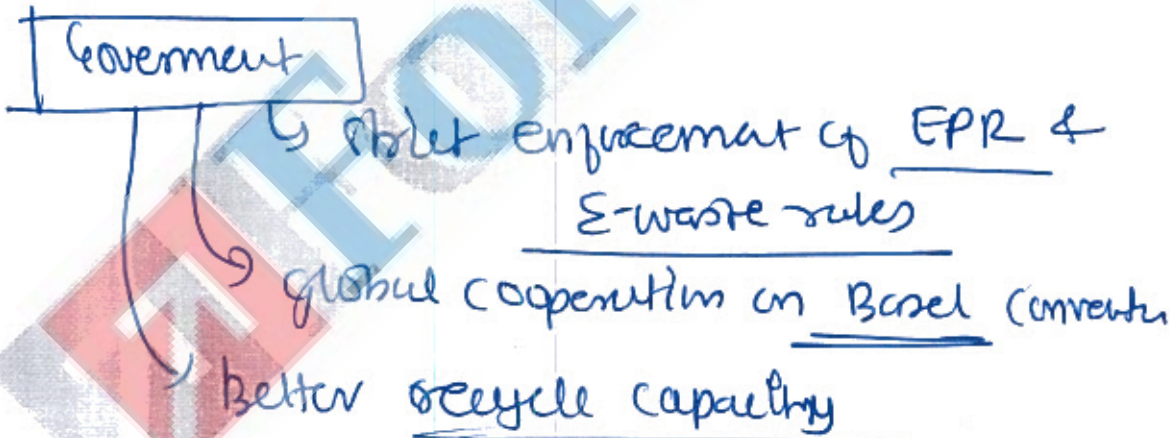 Government
strict enforcement of EPR &
E-waste rules
global cooperation on Basel Convention
Better recycle capacity